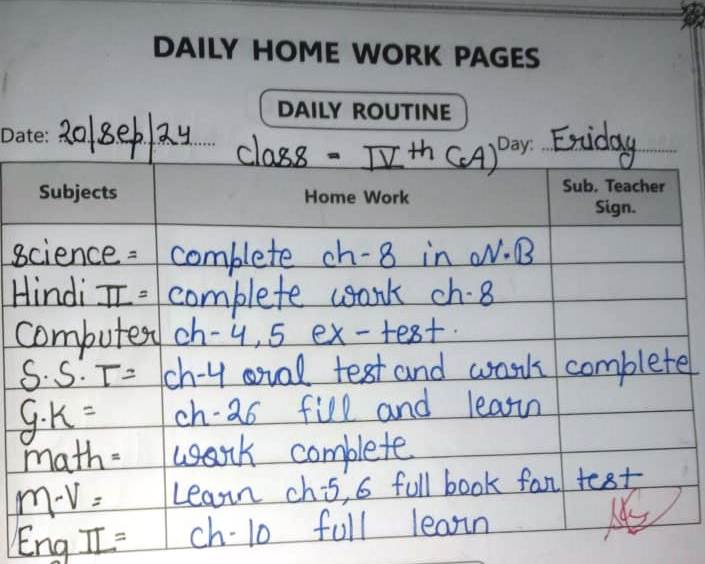 DAILY HOME WORK PAGES
DAILY ROUTINE
Date: 20/Sep/24 Class - IVth (A) Day: Friday
Subjects Home Work Sub. Teacher Sign.
Science = complete ch-8 in N.B
Hindi II = complete work ch-8
Computer ch-4,5 ex-test.
S.S.T = ch-4 oral test and work complete
G.K = ch-26 fill and learn
math = work complete
M-V = Learn ch-5,6 full book for test
Eng II = ch-10 full learn